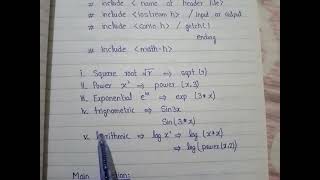 # include < name of header file>
# include <iostream.h> / input or output
# include <conio.h> / getch()
ending
# include <math.h>
i. Square root √r ⇒ sqrt (r)
ii. Power x³ ⇒ power (x,3)
iii. Exponential e³ˣ ⇒ exp (3*x)
iv. trignometric ⇒ Sin3x
Sin(3*x)
v. logarithmic ⇒ log x² ⇒ log (x*x)
⇒ log(power(x,2))
Main